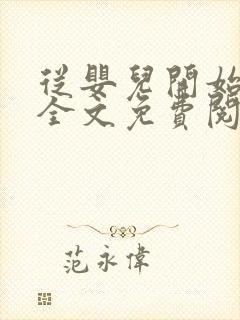 從嬰兒開始
全文免費閱
范永偉